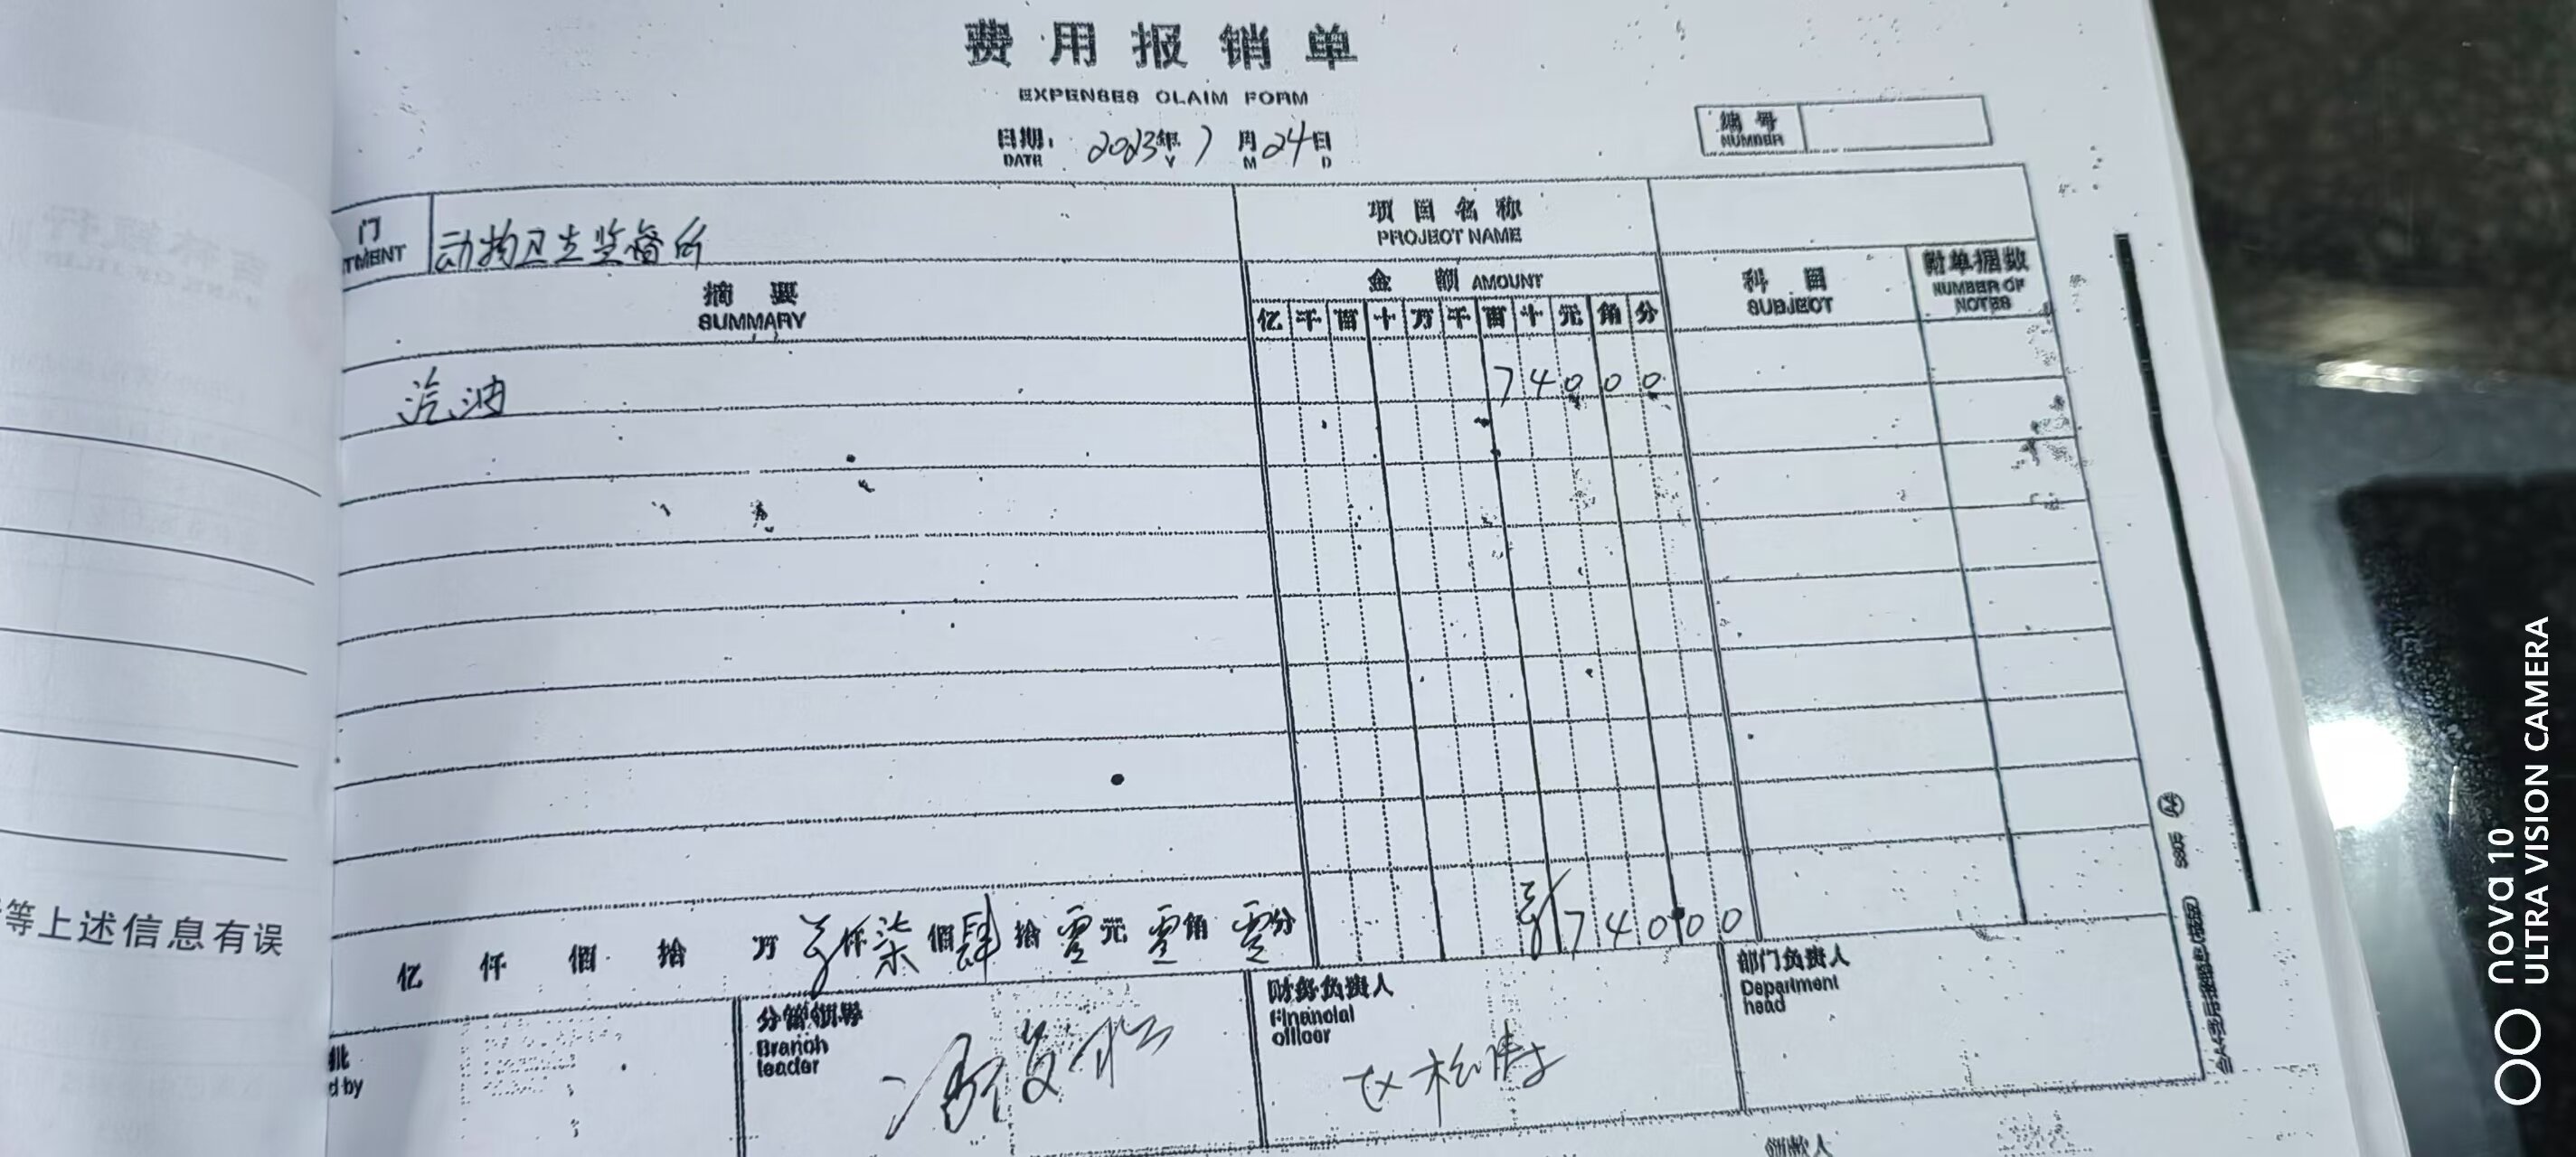 费用报销单
EXPENSES CLAIM FORM
日期: 2023年7月24日
DATE Y M D
编号
NUMBER
门
TMENT
动物卫生监督所
项目名称
PROJECT NAME
摘要
SUMMARY
金额 AMOUNT
亿千百十万千百十元角分
科目
SUBJECT
附单据数
NUMBER OF
NOTES
汽油 74000
亿 仟 佰 拾 万 仟柒佰肆拾零元零角零分 74000
批
d by
分管领导
Branch
leader
财务负责人
Financial
officer
部门负责人
Department
head
领款人
等上述信息有误
nova 10
ULTRA VISION CAMERA